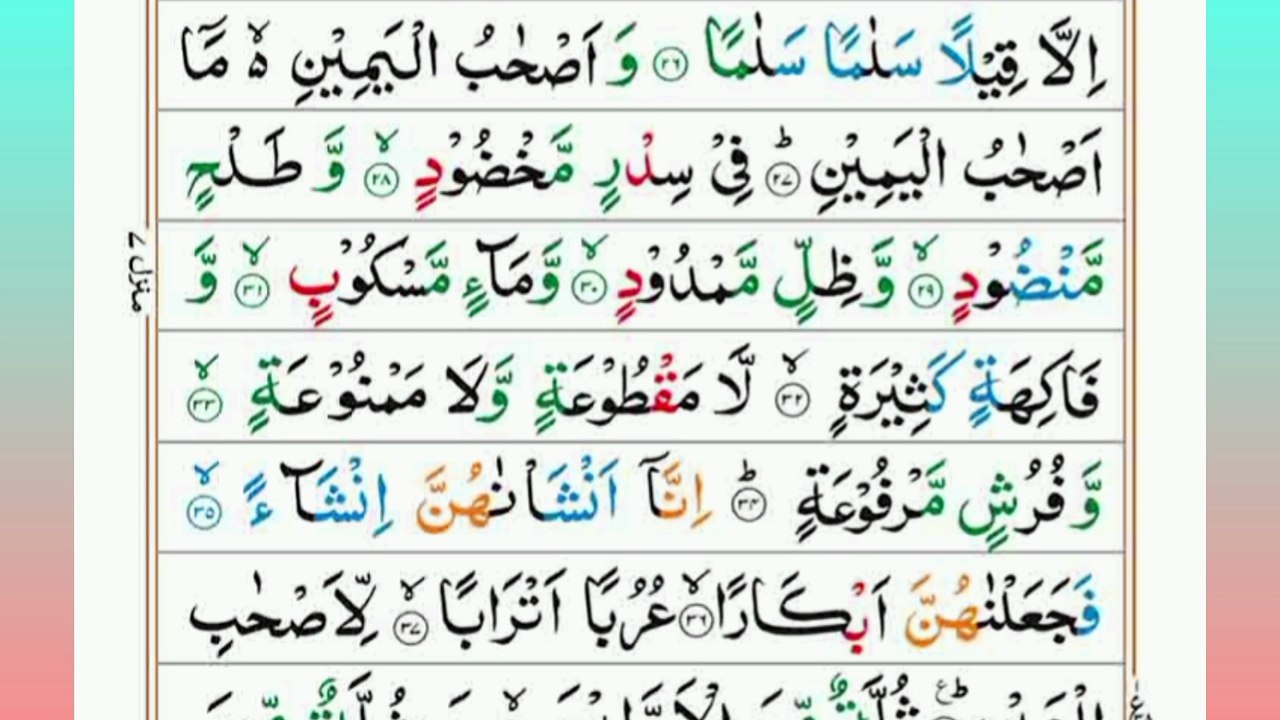 اِلَّا قِيْلًا سَلٰمًا سَلٰمًا ۝۲۶ وَ اَصْحٰبُ الْيَمِيْنِ ەۙ مَاۤ
اَصْحٰبُ الْيَمِيْنِؕ ۝۲۷ فِىْ سِدْرٍ مَّخْضُوْدٍۙ ۝۲۸ وَّ طَلْحٍ
مَّنْضُوْدٍۙ ۝۲۹ وَّ ظِلٍّ مَّمْدُوْدٍۙ ۝۳۰ وَّمَآءٍ مَّسْكُوْبٍۙ ۝۳۱ وَّ
فَاكِهَةٍ كَثِيْرَةٍۙ ۝۳۲ لَّا مَقْطُوْعَةٍ وَّلَا مَمْنُوْعَةٍۙ ۝۳۳
وَّ فُرُشٍ مَّرْفُوْعَةٍؕ ۝۳۴ اِنَّاۤ اَنْشَاْنٰهُنَّ اِنْشَآءًۙ ۝۳۵
فَجَعَلْنٰهُنَّ اَبْكَارًاۙ ۝۳۶ عُرُبًا اَتْرَابًاۙ ۝۳۷ لِّاَصْحٰبِ
منزل ۷